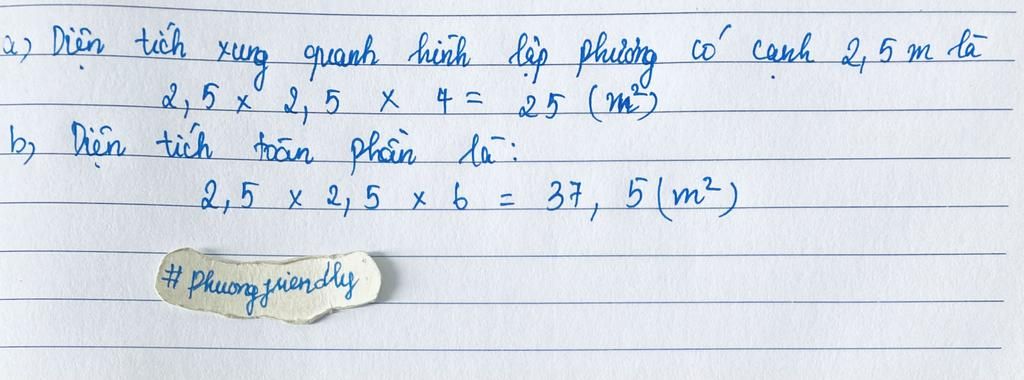 a) Diện tích xung quanh hình lập phương có cạnh 2,5 m là
2,5 x 2,5 x 4 = 25 (m²)
b) Diện tích toàn phần là:
2,5 x 2,5 x 6 = 37,5 (m²)
# Phuongfriendly